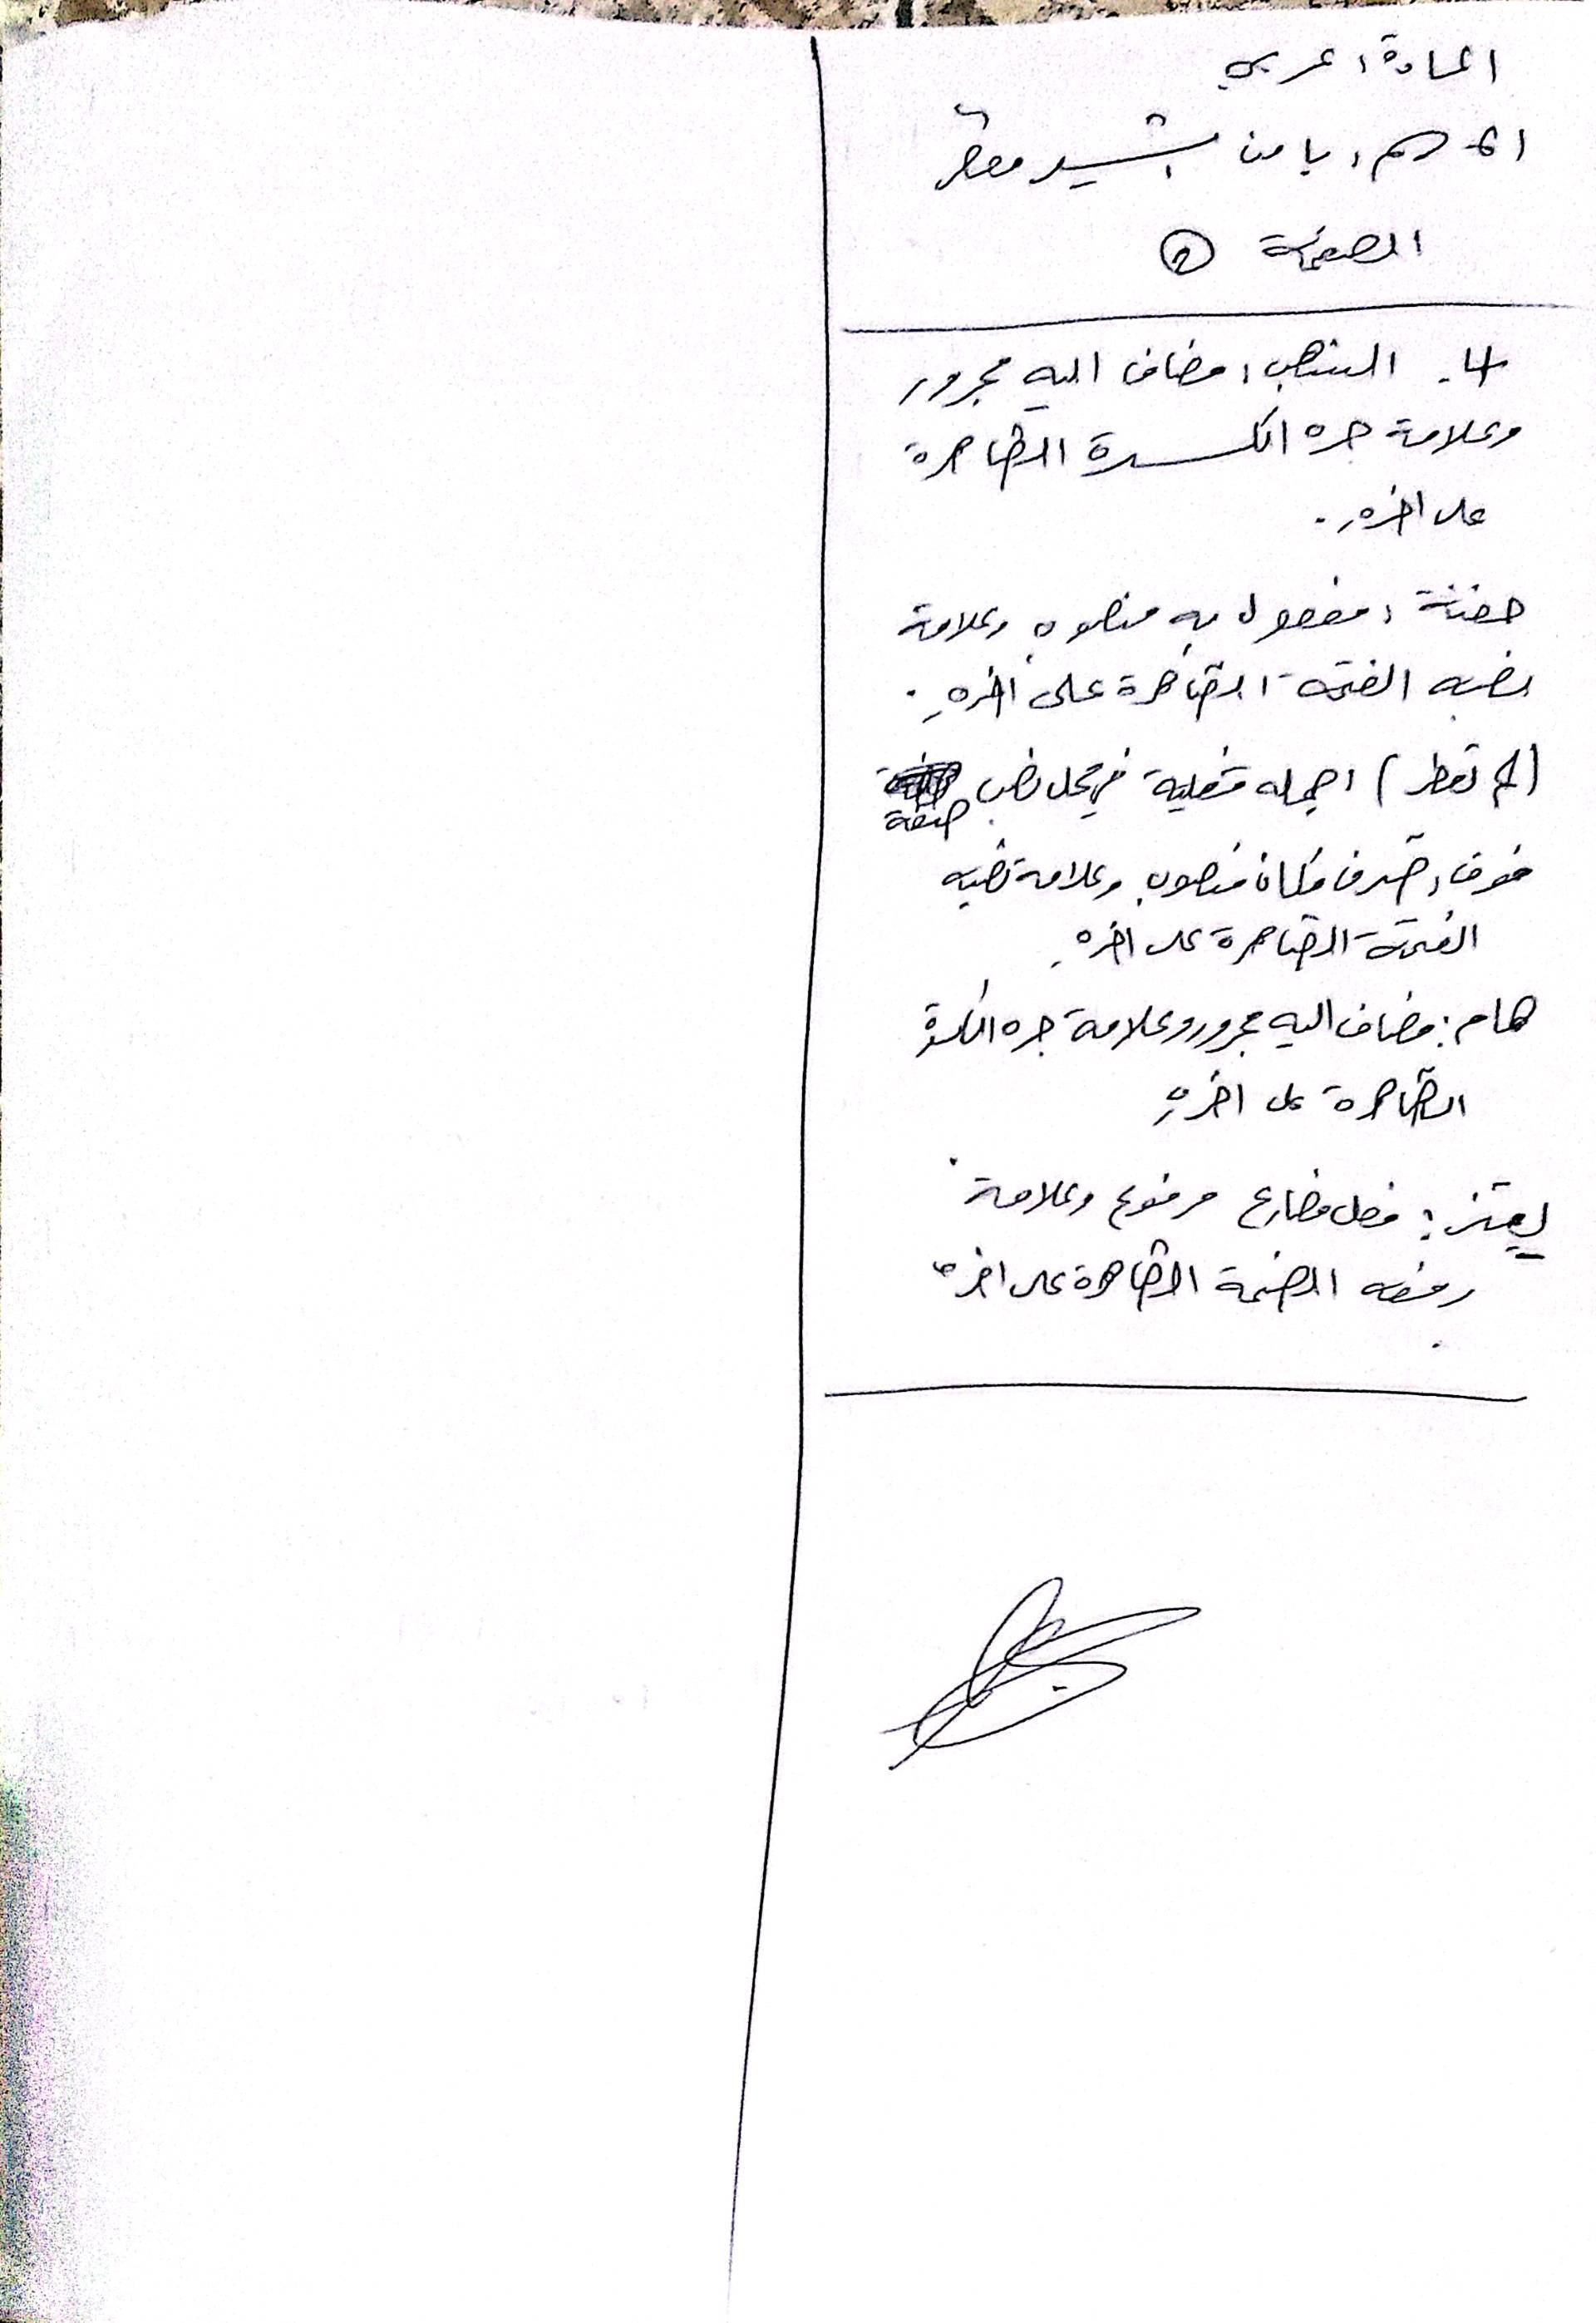 المادة: عربي
الاسم:
الصفحة ②
4. الذهب: مضاف اليه مجرور
وعلامة جره الكسرة الظاهرة
على اخره.
حفنة: مفعول به منصوب وعلامة
نصبه الفتحة الظاهرة على اخره.
(لم تعطر): جمله فعلية في محل نصب
صفة
فوق: ظرف مكان منصوب وعلامة نصبه
الفتحة الظاهرة على اخره.
هام: مضاف اليه مجرور وعلامة جره الكسرة
الظاهرة على اخره
يهتز: فعل مضارع مرفوع وعلامة
رفعه الضمة الظاهرة على اخره
.